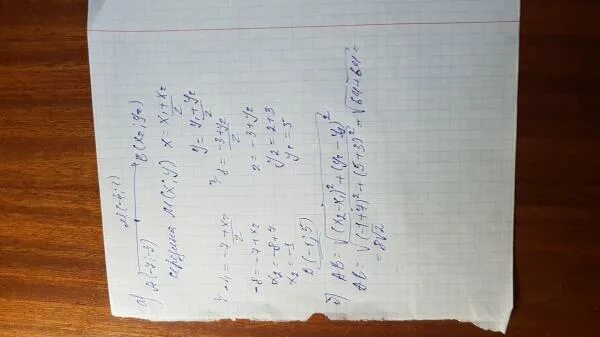 а) M(-4;1)
A(-7;-3) B(x₂;y₂)
середина M(x;y) x = x₁+x₂/2
y = y₁+y₂/2
-4 = -7+x₂/2
-8 = -7+x₂
x₂ = -8+7
x₂ = -1
1 = -3+y₂/2
2 = -3+y₂
y₂ = 2+3
y₂ = 5
B(-1;5)
б) AB = √(x₂-x₁)²+(y₂-y₁)²
AB = √(-1+7)²+(5+3)² = √64+64 =
= 8√2